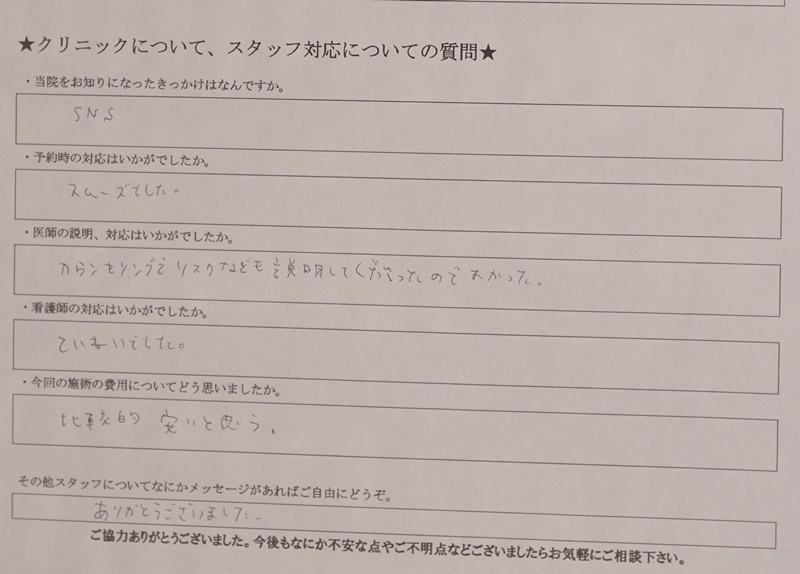 ★クリニックについて、スタッフ対応についての質問★
・当院をお知りになったきっかけはなんですか。
SNS
・予約時の対応はいかがでしたか。
スムーズでした。
・医師の説明、対応はいかがでしたか。
カウンセリングでリスクなども説明してくださったのでよかった。
・看護師の対応はいかがでしたか。
ていねいでした。
・今回の施術の費用についてどう思いましたか。
比較的 安いと思う。
その他スタッフについてなにかメッセージがあればご自由にどうぞ。
ありがとうございました。
ご協力ありがとうございました。今後もなにか不安な点やご不明点などございましたらお気軽にご相談下さい。